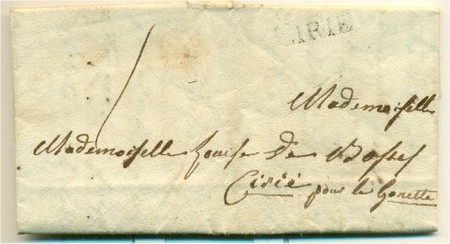 CIRIE
Mademoiselle
Mademoiselle Louise De Bosses
Cirié pour le Gonette